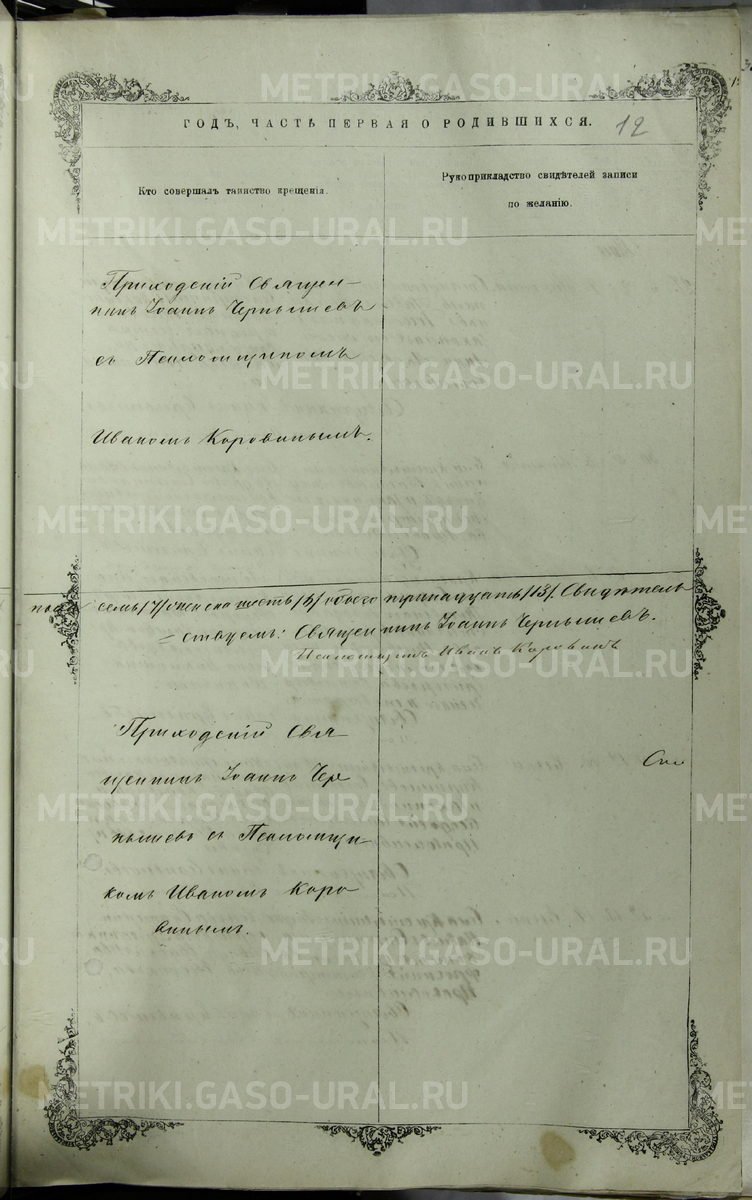 ГОДЪ, ЧАСТЬ ПЕРВАЯ О РОДИВШИХСЯ.
12
Кто совершалъ таинство крещенія.
Рукоприкладство свидѣтелей записи
по желанію.
Приходскій Священ-
никъ Іоаннъ Чернышевъ
съ Псаломщикомъ
Иваномъ Коровинымъ.
семь /7/ женска шесть /6/ обоего тринадцать /13/. Свидѣтель
ствуемъ: Священникъ Іоаннъ Чернышевъ.
Псаломщикъ Иванъ Коровинъ
Приходскій Свя
щенникъ Іоаннъ Чер
нышевъ съ Псаломщи-
комъ Иваномъ Коро
винымъ.
METRIKI.GASO-URAL.RU